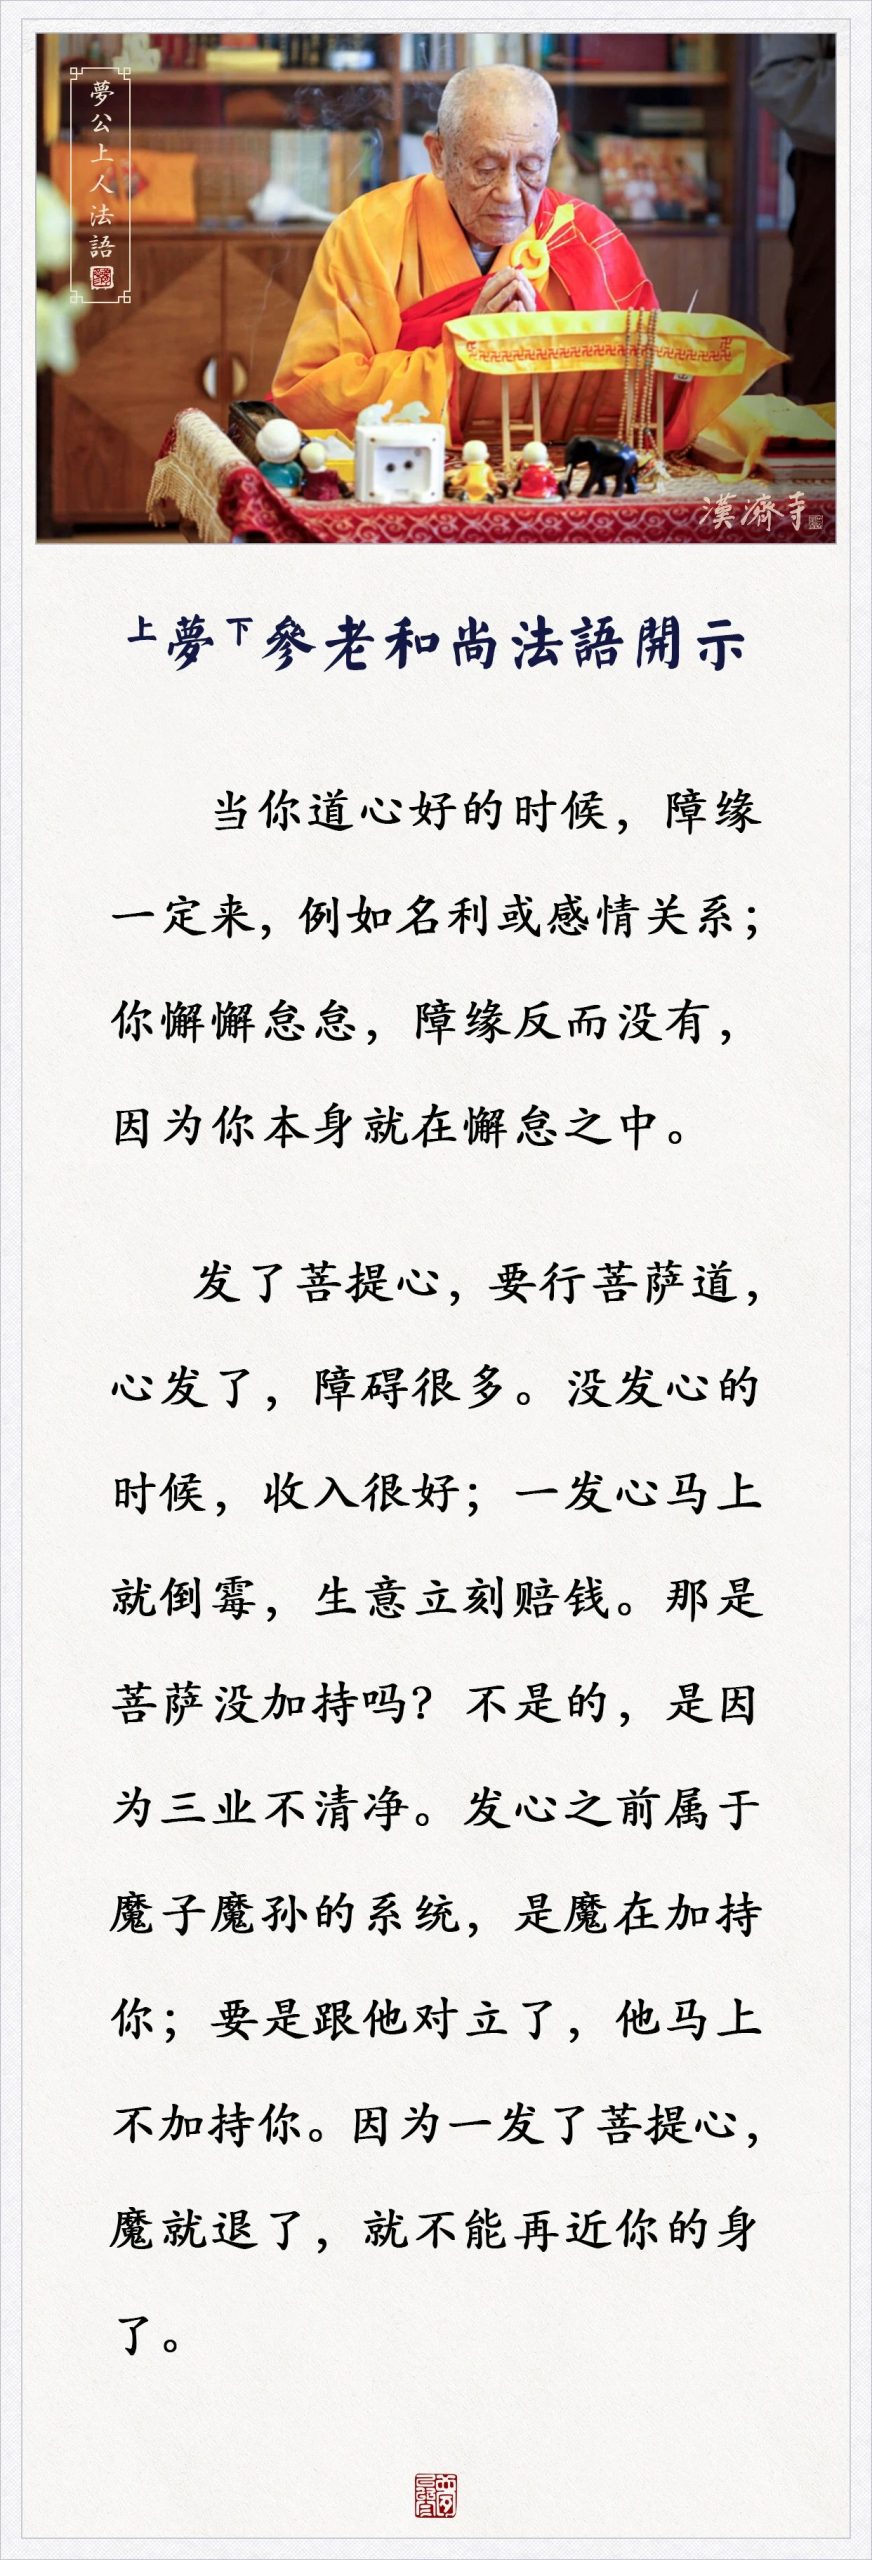 夢公上人法語
漢濟寺
上夢下參老和尚法語開示
当你道心好的时候，障缘
一定来，例如名利或感情关系；
你懈懈怠怠，障缘反而没有，
因为你本身就在懈怠之中。
发了菩提心，要行菩萨道，
心发了，障碍很多。没发心的
时候，收入很好；一发心马上
就倒霉，生意立刻赔钱。那是
菩萨没加持吗？不是的，是因
为三业不清净。发心之前属于
魔子魔孙的系统，是魔在加持
你；要是跟他对立了，他马上
不加持你。因为一发了菩提心，
魔就退了，就不能再近你的身
了。